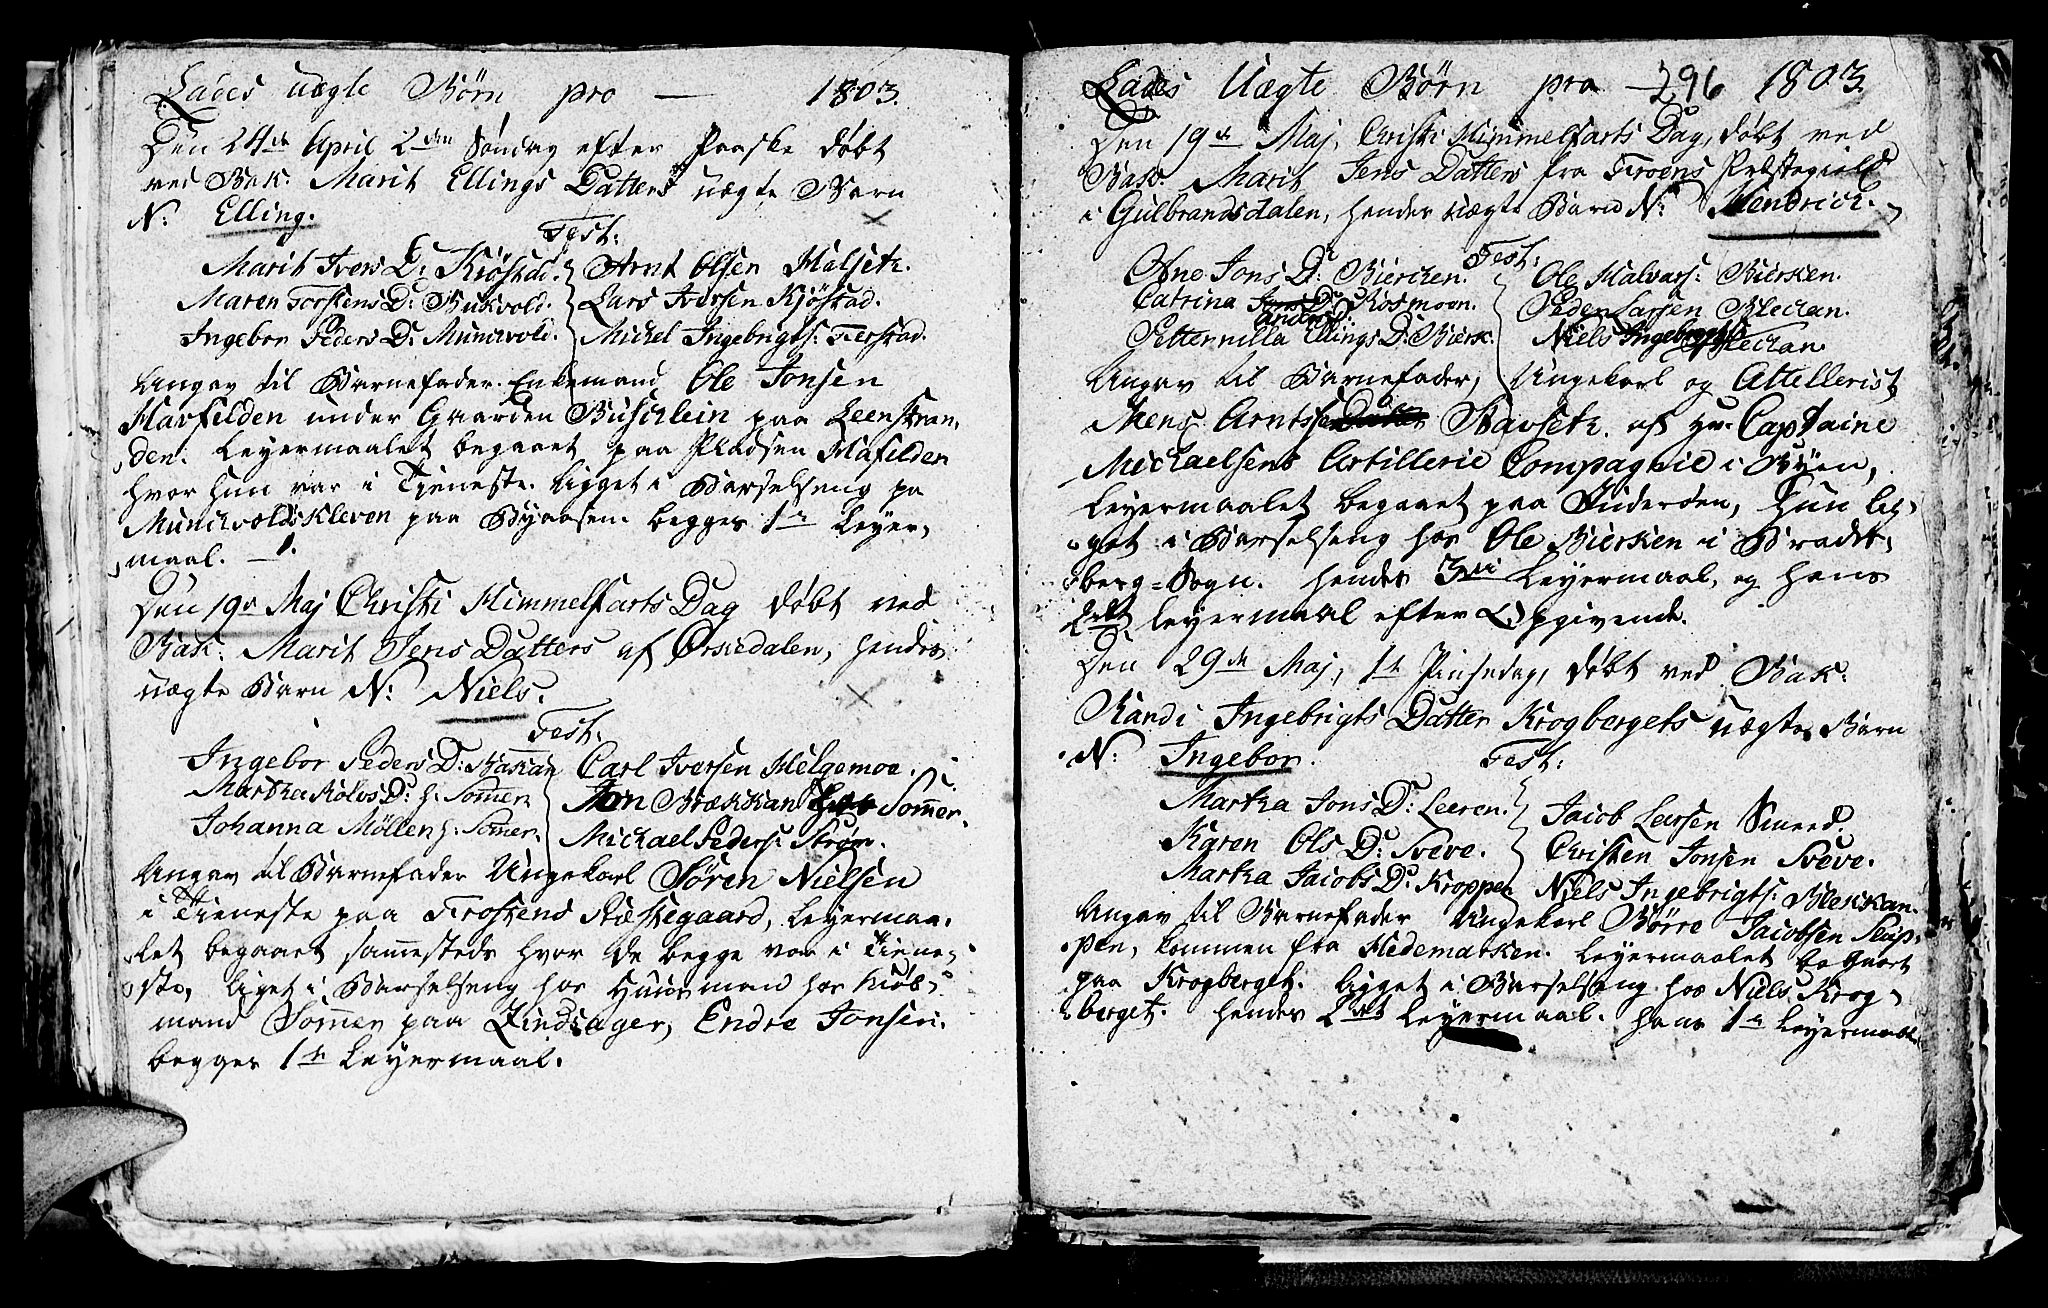 Lades uægte Børn pro — 1803.
Den 24de April 2den Søndag efter Paaske døbt
ved Bak: Marit Ellings Datters uægte Barn
N: Elling.
Test:
Marit Ivers D: Kiøstad. Arnt Olsen Halseth.
Maren Torstens D: Bukvold. Lars Iversen Kjøstad.
Ingebor Peders D: Munchvold. Michel Ingebrigts: Fierstad.
Angav til Barnefader Enkemand Ole Jonsen
Havfelden under Gaarden Buschlein paa Leenstran,
den. Leyermaalet begaaet paa Pladsen Hafelden
hvor hun var i Tieneste. ligget i Barselseng pa
Munchvolds Kleven paa Byaasen. begges 1te Leyer,
maal. —
Den 19de Maj Christi Himmelfarts Dag døbt ved
Bak: Marit Jens Datters af Ørkedalen, hendes
uægte Barn N: Niels.
Test:
Ingebor Peders D: Bakan Carl Iversen Helgemoe.
Martha Rolvs D: h: Sommer Jon Brækkan Sommer.
Johanna Möllen h: Somer. Michael Peders: Strøm.
Angav til Barnefader Ungekarl Sören Nielsen
i Tieneste paa Frostens Præstegaard, Leyermaa,
let begaaet sammesteds hvor de begge var i Tiene,
ste, liget i Barselseng hos Huusmand hos Kiøb,
mand Sommer paa Rindsager, Endre Jonsen.
begges 1te Leyermaal.
Lades Uægte Børn pro — 296 1803
Den 19de Maj, Christi Himmelfarts Dag, døbt ved
Bak: Marit Jens Datters fra Froens Præstegield
i Gulbrandsdalen, hendes uægte Barn N: Hendrich.
Test:
Ane Jons D: Bierchen. Ole Halvars: Biersken.
Catrina Anders D: Rosmoen. Peder Larsen Blechan.
Petternilla Ellings D: Biersk. Niels Ingebrigts: Blechan.
Angav til Barnefader, Ungekarl og Attellerist
Hens Arntssen Stavseth. af Hr. Captaine
Michaelsens Artillerie Compagnie i Byen,
Leyermaalet begaaet paa Inderøen, hun lig,
get i Barselseng hos Ole Biersken i Bratt,
berg=Sogn. hendes 3die Leyermaal, og hans
2det Leyermaal efter Opgivende.
Den 29de Maj, 1te Pinsedag, døbt ved Bak:
Randi Ingebrigts Datter Krogbergets uægte Barn
N: Ingebor.
Test:
Martha Jons D: Leeren. Jacob Larsen Smeed.
Karen Ols D: Sveve. Christen Jonsen Sveve.
Martha Jacobs D: Kroppen Niels Ingebrigts: Blekkan.
Angav til Barnefader Ungekarl Børre Jacobsen Leup,
pen, kommen fra Hedemarken. Leyermaalet begaaet
paa Krogberget. ligget i Barselseng hos Niels Krog,
berget. hendes 2det Leyermaal. hans 1te Leyermaal